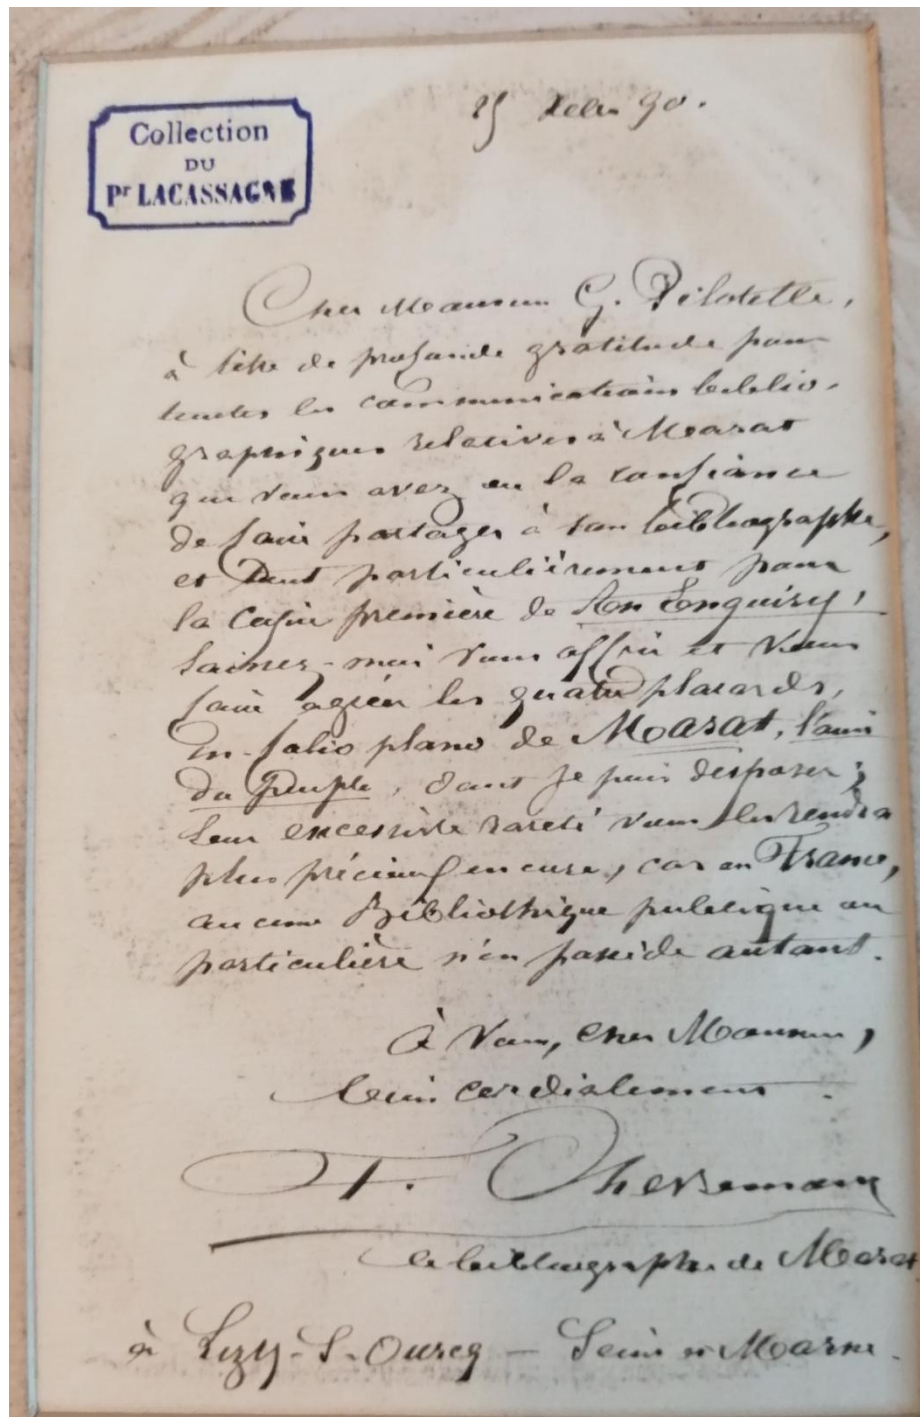 Collection
DU
Pr LACASSAGNE
90.
Cher Monsieur G. Pilotelle,
à titre de profonde gratitude pour
toutes les communications biblio-
graphiques relatives à Marat
que vous avez eu la confiance
de faire partager à son bibliographe,
et tout particulièrement pour
la copie première de An Enquiry,
laissez-moi vous offrir et vous
faire agréer les quatre placards,
in-folio plano de Marat, l'ami
du Peuple, dont je puis disposer;
leur excessive rareté vous les rendra
plus précieux encore, car en France,
aucune Bibliothèque publique ou
particulière n'en possède autant.
à Vous, cher Monsieur,
bien cordialement.
F. Chevremont
le bibliographe de Marat
à Lizy-S-Ourcq — Seine et Marne.